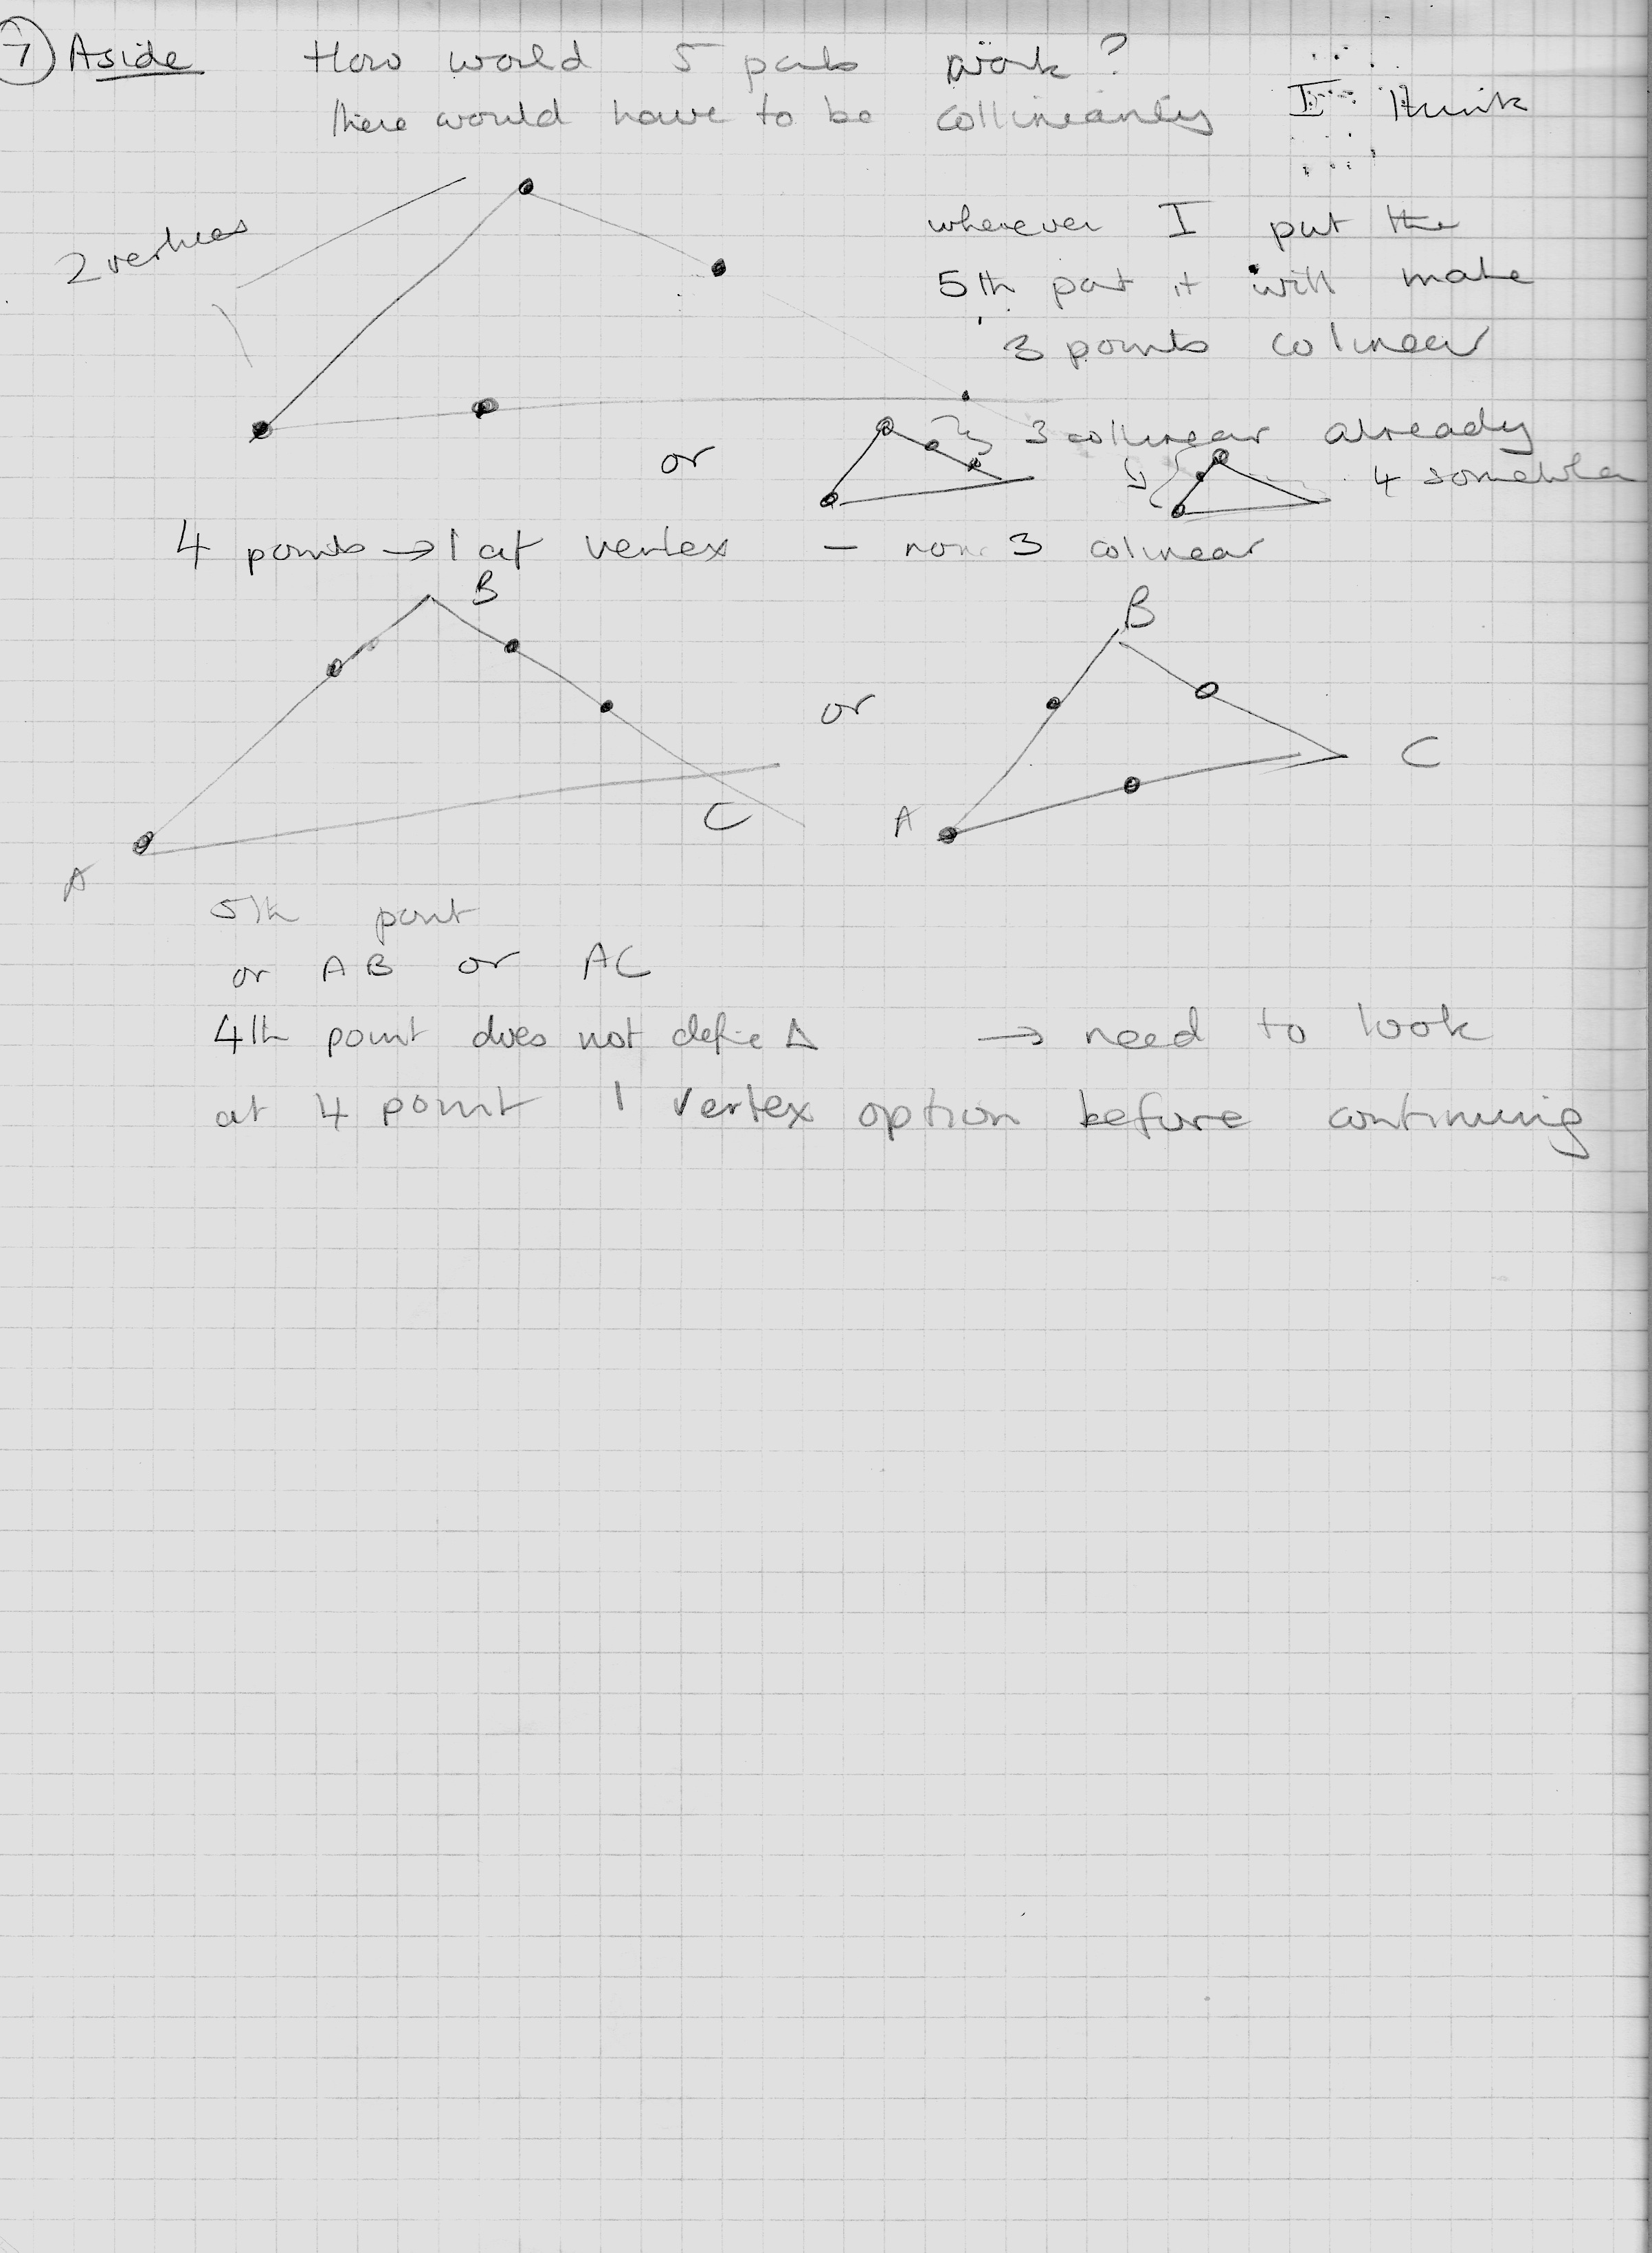 7 Aside How would 5 points work?
there would have to be collinearity I think
2 vertices
wherever I put the
5th point it will make
3 points colinear
or
3 collinear already
4 somewhere
4 points → 1 at vertex – non 3 colinear
B
A
C
or
B
A
C
5th point
or AB or AC
4th point does not define Δ → need to look
at 4 point 1 vertex option before continuing